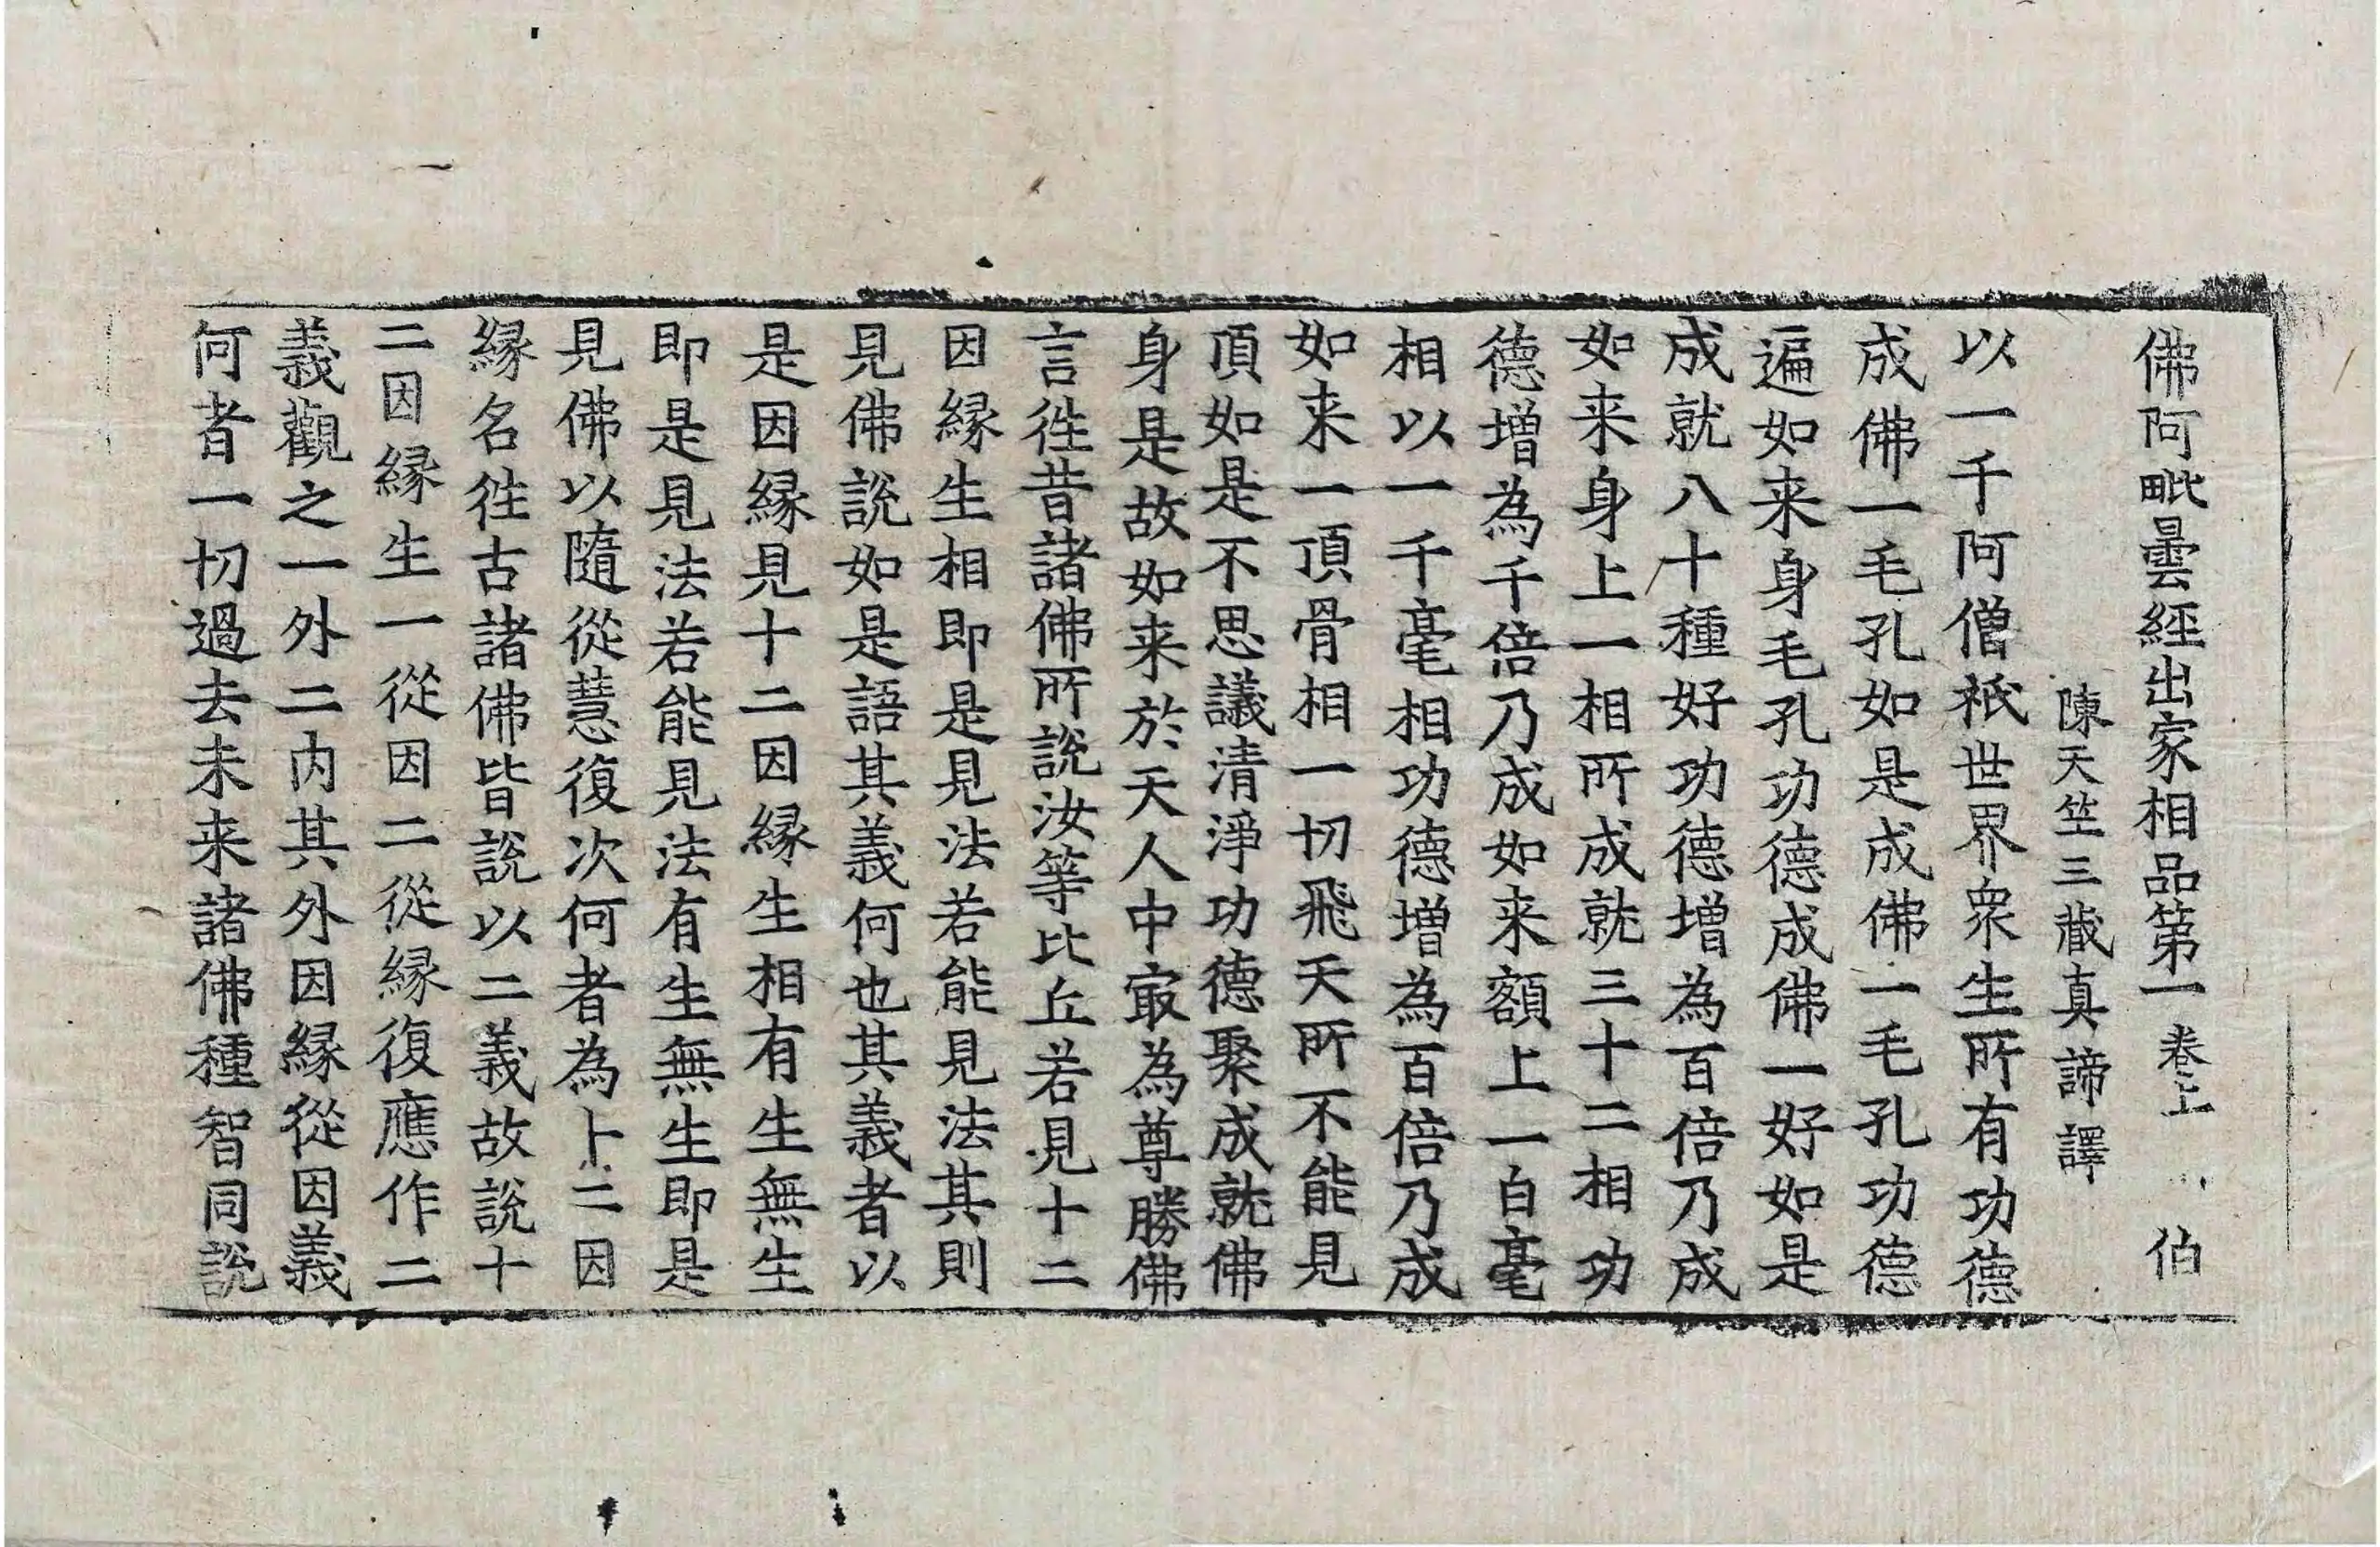 佛阿毗曇經出家相品第一 卷上 伯
陳天竺三藏真諦譯
以一千阿僧祇世界衆生所有功德
成佛一毛孔如是成佛一毛孔功德
遍如来身毛孔功德成佛一好如是
成就八十種好功德增為百倍乃成
如来身上一相所成就三十二相功
德增為千倍乃成如来額上一白毫
相以一千毫相功德增為百倍乃成
如来一頂骨相一切飛天所不能見
頂如是不思議清淨功德聚成就佛
身是故如来於天人中㝡為尊勝佛
言徃昔諸佛所說汝等比丘若見十二
因縁生相即是見法若能見法其則
見佛說如是語其義何也其義者以
是因縁見十二因縁生相有生無生
即是見法若能見法有生無生即是
見佛以隨從慧復次何者為上二因
縁名徃古諸佛皆說以二義故說十
二因縁生一從因二從縁復應作二
義觀之一外二内其外因縁從因義
何者一切過去未来諸佛種智同說